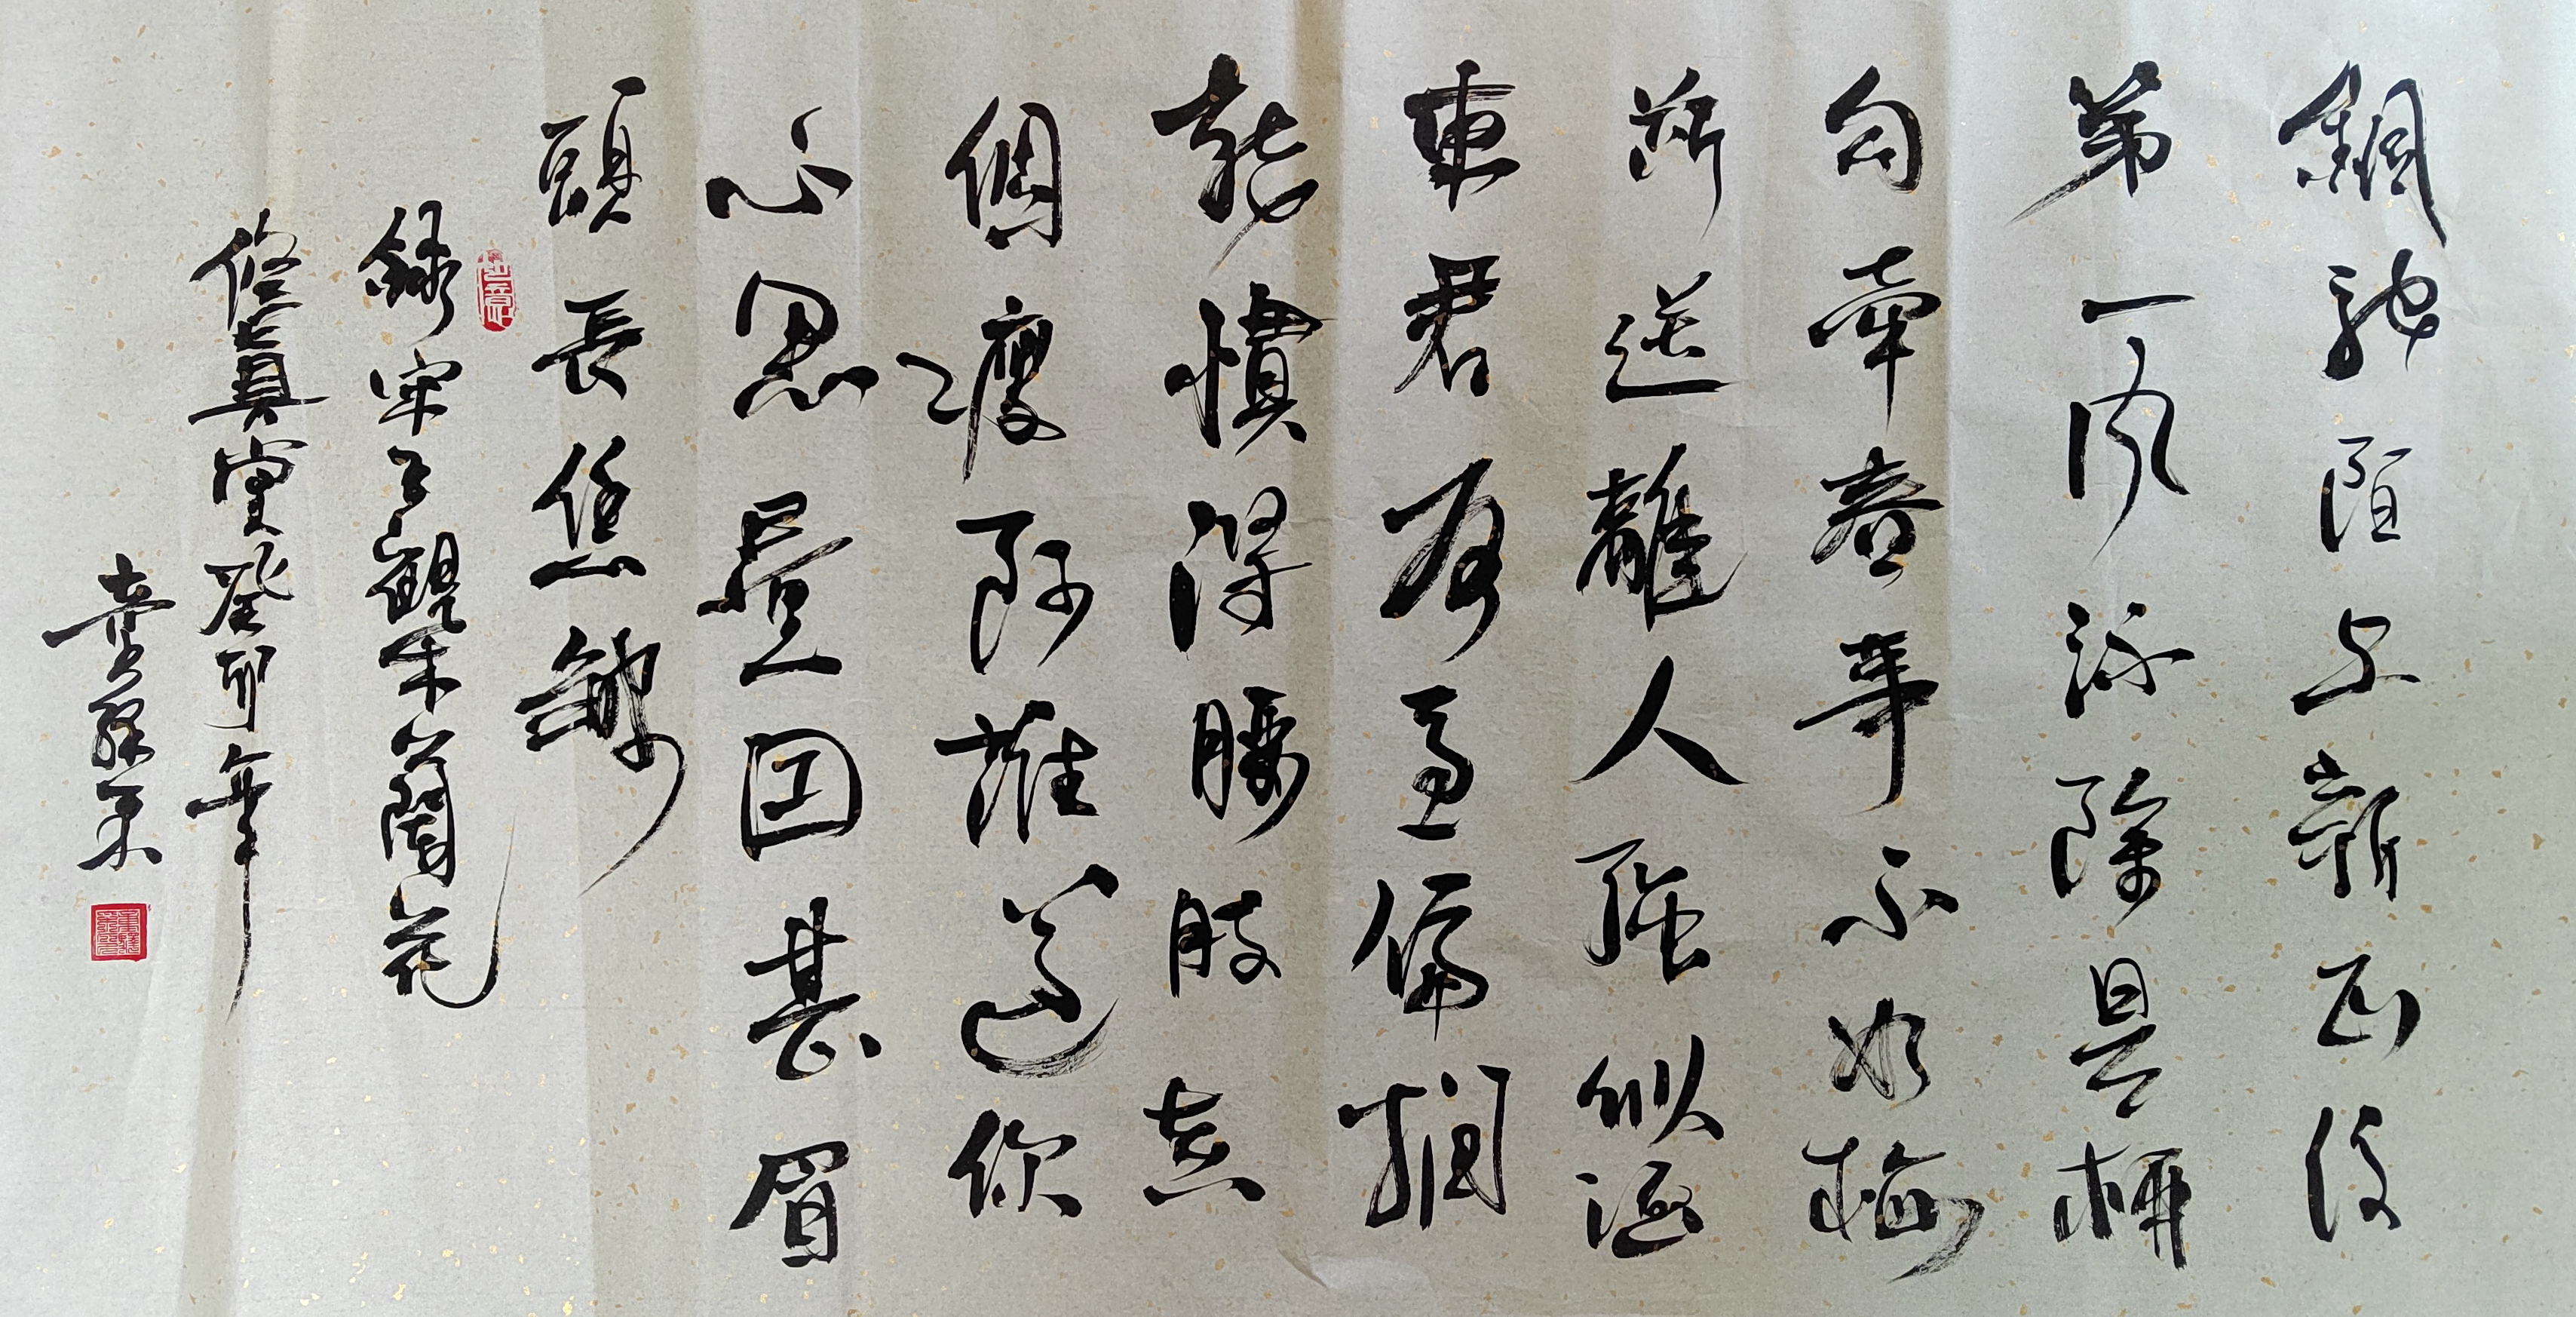 銅駝陌上新正後
第一風流除是柳
勾牽春事不如梅
斷送離人強似酒
東君有意偏撋
就慣得腰肢真
個瘦阿誰道你
不思量因甚眉
頭長恁皺
錄宋王觀木蘭花
修真室癸卯年